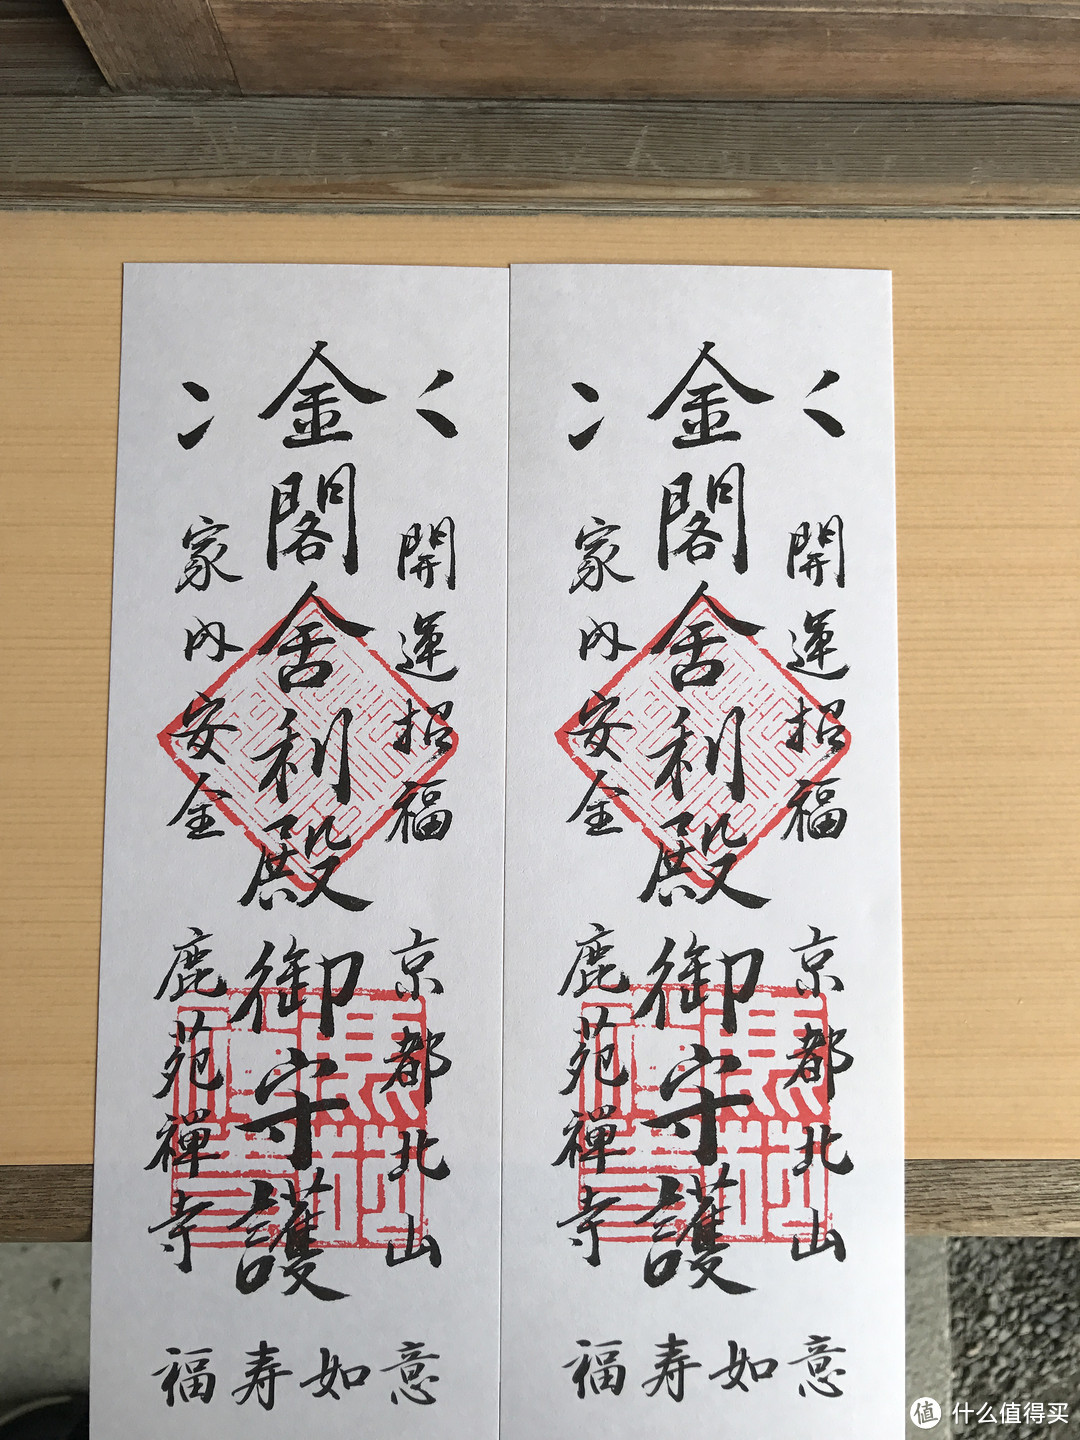 金閣舍利殿御守護
開運招福
家内安全
京都北山
鹿苑禅寺
福寿如意
金閣舍利殿御守護
開運招福
家内安全
京都北山
鹿苑禅寺
福寿如意
值 什么值得买